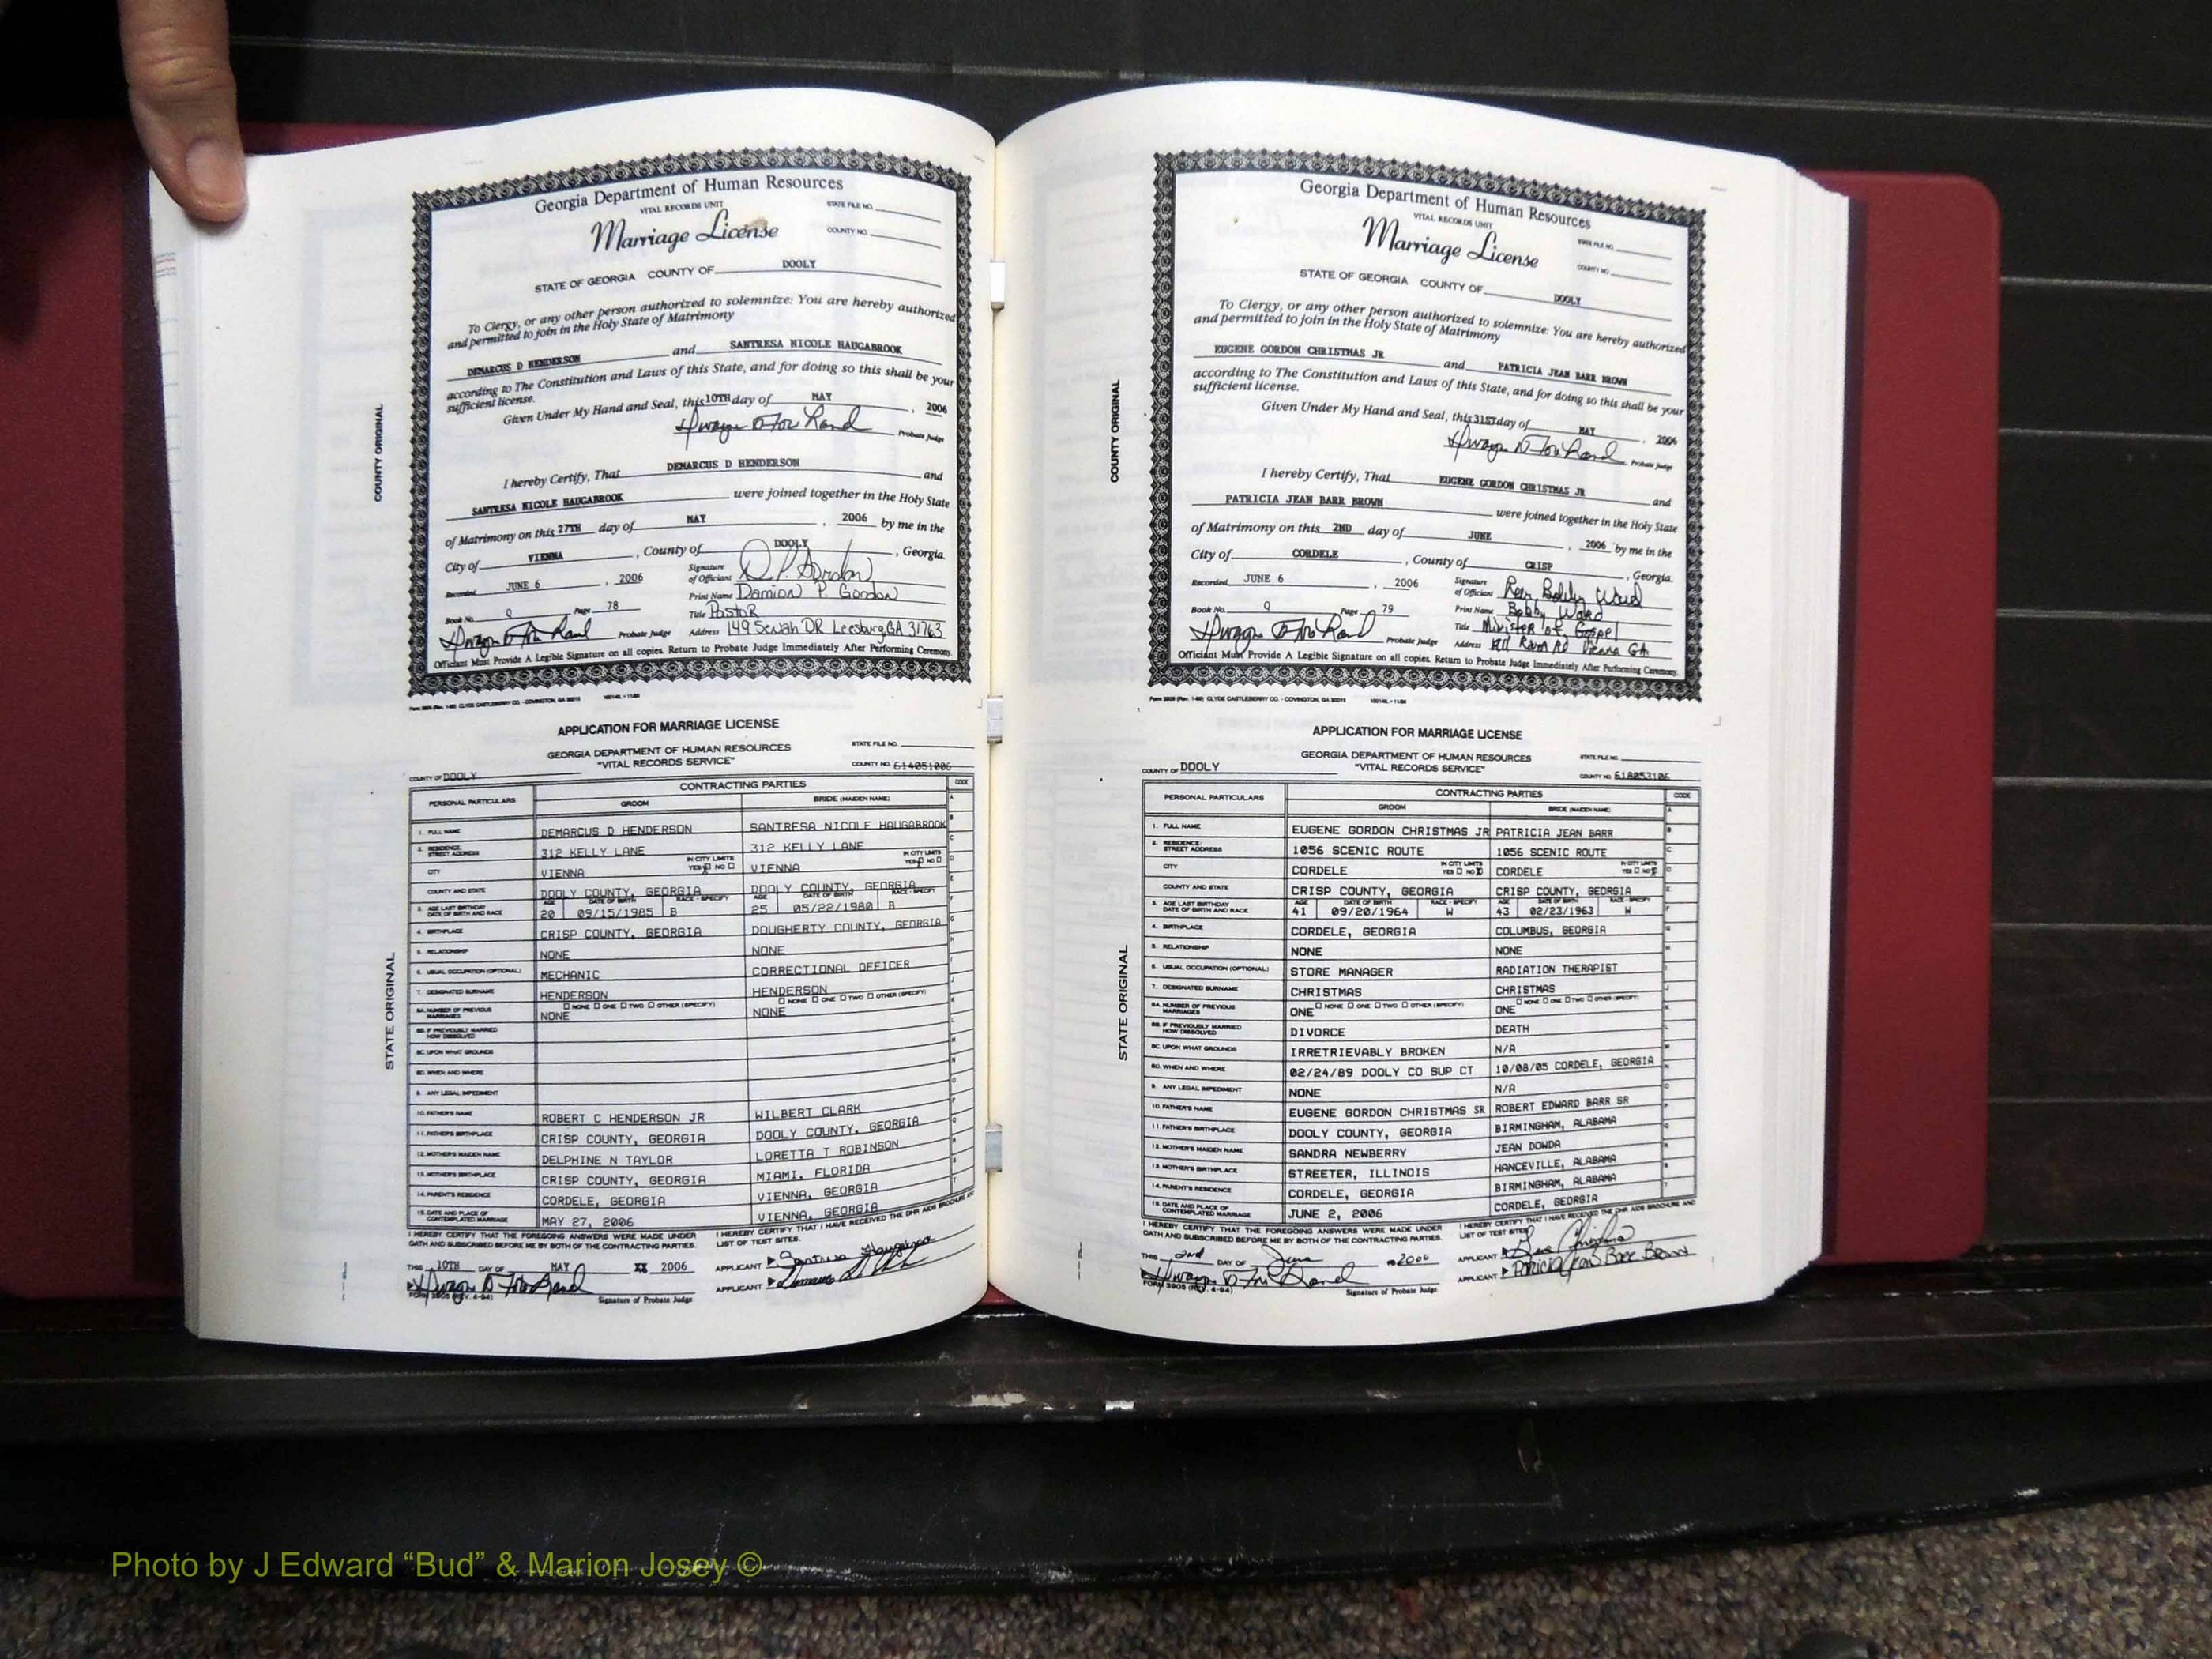 Georgia Department of Human Resources
VITAL RECORDS UNIT
STATE FILE NO.
Marriage License
COUNTY NO.
STATE OF GEORGIA COUNTY OF DOOLY
To Clergy, or any other person authorized to solemnize: You are hereby authorized
and permitted to join in the Holy State of Matrimony
DEMARCUS D HENDERSON and SANTRESA NICOLE HAUGABROOK
according to The Constitution and Laws of this State, and for doing so this shall be your
sufficient license.
Given Under My Hand and Seal, this 10TH day of MAY, 2006
Probate Judge
I hereby Certify, That DEMARCUS D HENDERSON and
SANTRESA NICOLE HAUGABROOK were joined together in the Holy State
of Matrimony on this 27TH day of MAY, 2006 by me in the
City of VIENNA, County of DOOLY, Georgia.
Recorded JUNE 6, 2006 Signature of Officiant D.P. Gordon
Print Name Damion P. Gordon
Book No. Q Page 78 Title Pastor
Probate Judge Address 149 Senah DR Leesburg GA 31763
Officiant Must Provide A Legible Signature on all copies. Return to Probate Judge Immediately After Performing Ceremony.
COUNTY ORIGINAL
APPLICATION FOR MARRIAGE LICENSE
GEORGIA DEPARTMENT OF HUMAN RESOURCES STATE FILE NO.
"VITAL RECORDS SERVICE" COUNTY NO. 614051006
COUNTY OF DOOLY
CONTRACTING PARTIES CODE
PERSONAL PARTICULARS GROOM BRIDE (MAIDEN NAME)
1. FULL NAME DEMARCUS D HENDERSON SANTRESA NICOLE HAUGABROOK
2. RESIDENCE STREET ADDRESS 312 KELLY LANE 312 KELLY LANE
CITY VIENNA IN CITY LIMITS YES NO VIENNA IN CITY LIMITS YES NO
COUNTY AND STATE DOOLY COUNTY, GEORGIA DOOLY COUNTY, GEORGIA
3. AGE LAST BIRTHDAY DATE OF BIRTH AND RACE AGE 20 DATE OF BIRTH 09/15/1985 RACE - SPECIFY B AGE 25 DATE OF BIRTH 05/22/1980 RACE - SPECIFY B
4. BIRTHPLACE CRISP COUNTY, GEORGIA DOUGHERTY COUNTY, GEORGIA
5. RELATIONSHIP NONE NONE
6. USUAL OCCUPATION (OPTIONAL) MECHANIC CORRECTIONAL OFFICER
7. DESIGNATED SURNAME HENDERSON HENDERSON
8A. NUMBER OF PREVIOUS MARRIAGES NONE ONE TWO OTHER (SPECIFY) NONE NONE ONE TWO OTHER (SPECIFY) NONE
8B. IF PREVIOUSLY MARRIED HOW DISSOLVED
8C. UPON WHAT GROUNDS
8D. WHEN AND WHERE
9. ANY LEGAL IMPEDIMENT
10. FATHER'S NAME ROBERT C HENDERSON JR WILBERT CLARK
11. FATHER'S BIRTHPLACE CRISP COUNTY, GEORGIA DOOLY COUNTY, GEORGIA
12. MOTHER'S MAIDEN NAME DELPHINE N TAYLOR LORETTA T ROBINSON
13. MOTHER'S BIRTHPLACE CRISP COUNTY, GEORGIA MIAMI, FLORIDA
14. PARENT'S RESIDENCE CORDELE, GEORGIA VIENNA, GEORGIA
15. DATE AND PLACE OF CONTEMPLATED MARRIAGE MAY 27, 2006 VIENNA, GEORGIA
I HEREBY CERTIFY THAT THE FOREGOING ANSWERS WERE MADE UNDER I HEREBY CERTIFY THAT I HAVE RECEIVED THE DHR AIDS BROCHURE AND
OATH AND SUBSCRIBED BEFORE ME BY BOTH OF THE CONTRACTING PARTIES. LIST OF TEST SITES.
THIS 10TH DAY OF MAY 2006 APPLICANT Santresa Haugabrook
APPLICANT
FORM 3905 (REV. 4-94) Signature of Probate Judge
STATE ORIGINAL
Georgia Department of Human Resources
VITAL RECORDS UNIT
STATE FILE NO.
Marriage License
COUNTY NO.
STATE OF GEORGIA COUNTY OF DOOLY
To Clergy, or any other person authorized to solemnize: You are hereby authorized
and permitted to join in the Holy State of Matrimony
EUGENE GORDON CHRISTMAS JR and PATRICIA JEAN BARR BROWN
according to The Constitution and Laws of this State, and for doing so this shall be your
sufficient license.
Given Under My Hand and Seal, this 31ST day of MAY, 2006
Probate Judge
I hereby Certify, That EUGENE GORDON CHRISTMAS JR and
PATRICIA JEAN BARR BROWN were joined together in the Holy State
of Matrimony on this 2ND day of JUNE, 2006 by me in the
City of CORDELE, County of CRISP, Georgia.
Recorded JUNE 6, 2006 Signature of Officiant Rev. Bobby Ward
Print Name Bobby Ward
Book No. Q Page 79 Title Minister of Gospel
Probate Judge Address Rd Vienna GA
Officiant Must Provide A Legible Signature on all copies. Return to Probate Judge Immediately After Performing Ceremony.
COUNTY ORIGINAL
APPLICATION FOR MARRIAGE LICENSE
GEORGIA DEPARTMENT OF HUMAN RESOURCES STATE FILE NO.
"VITAL RECORDS SERVICE" COUNTY NO. 618053106
COUNTY OF DOOLY
CONTRACTING PARTIES CODE
PERSONAL PARTICULARS GROOM BRIDE (MAIDEN NAME)
1. FULL NAME EUGENE GORDON CHRISTMAS JR PATRICIA JEAN BARR
2. RESIDENCE STREET ADDRESS 1056 SCENIC ROUTE 1056 SCENIC ROUTE
CITY CORDELE IN CITY LIMITS YES NO CORDELE IN CITY LIMITS YES NO
COUNTY AND STATE CRISP COUNTY, GEORGIA CRISP COUNTY, GEORGIA
3. AGE LAST BIRTHDAY DATE OF BIRTH AND RACE AGE 41 DATE OF BIRTH 09/20/1964 RACE - SPECIFY W AGE 43 DATE OF BIRTH 02/23/1963 RACE - SPECIFY W
4. BIRTHPLACE CORDELE, GEORGIA COLUMBUS, GEORGIA
5. RELATIONSHIP NONE NONE
6. USUAL OCCUPATION (OPTIONAL) STORE MANAGER RADIATION THERAPIST
7. DESIGNATED SURNAME CHRISTMAS CHRISTMAS
8A. NUMBER OF PREVIOUS MARRIAGES NONE ONE TWO OTHER (SPECIFY) ONE NONE ONE TWO OTHER (SPECIFY) ONE
8B. IF PREVIOUSLY MARRIED HOW DISSOLVED DIVORCE DEATH
8C. UPON WHAT GROUNDS IRRETRIEVABLY BROKEN N/A
8D. WHEN AND WHERE 02/24/89 DOOLY CO SUP CT 10/08/05 CORDELE, GEORGIA
9. ANY LEGAL IMPEDIMENT NONE N/A
10. FATHER'S NAME EUGENE GORDON CHRISTMAS SR ROBERT EDWARD BARR SR
11. FATHER'S BIRTHPLACE DOOLY COUNTY, GEORGIA BIRMINGHAM, ALABAMA
12. MOTHER'S MAIDEN NAME SANDRA NEWBERRY JEAN DOWDA
13. MOTHER'S BIRTHPLACE STREETER, ILLINOIS HANCEVILLE, ALABAMA
14. PARENT'S RESIDENCE CORDELE, GEORGIA BIRMINGHAM, ALABAMA
15. DATE AND PLACE OF CONTEMPLATED MARRIAGE JUNE 2, 2006 CORDELE, GEORGIA
I HEREBY CERTIFY THAT THE FOREGOING ANSWERS WERE MADE UNDER I HEREBY CERTIFY THAT I HAVE RECEIVED THE DHR AIDS BROCHURE AND
OATH AND SUBSCRIBED BEFORE ME BY BOTH OF THE CONTRACTING PARTIES. LIST OF TEST SITES.
THIS 2nd DAY OF June 2006 APPLICANT Gene Christmas
APPLICANT Patricia Jean Barr Brown
FORM 3905 (REV. 4-94) Signature of Probate Judge
STATE ORIGINAL
Photo by J Edward “Bud” & Marion Josey ©